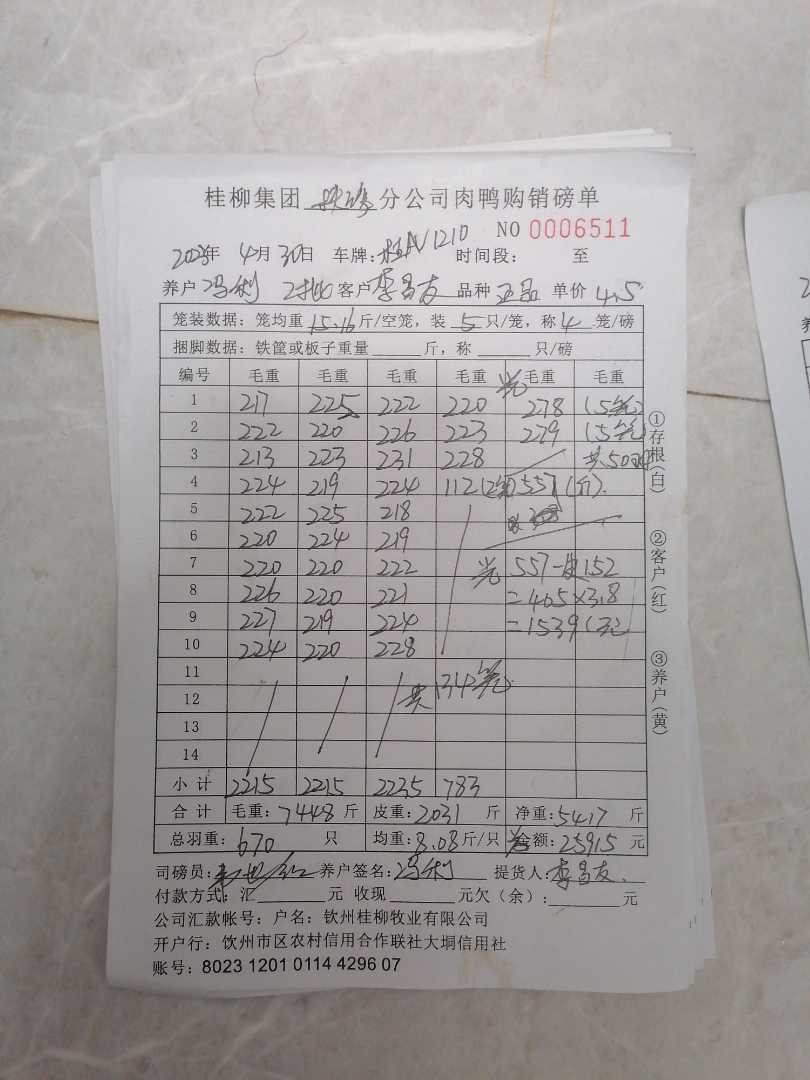 桂柳集团 分公司肉鸭购销磅单
NO 0006511
2023年 4月30日 车牌：桂AV1210 时间段： 至
养户 冯利 2批 客户 李昌友 品种 正品 单价 4.5
笼装数据：笼均重 15.16 斤/空笼，装 5 只/笼，称 4 笼/磅
捆脚数据：铁筐或板子重量 斤，称 只/磅
编号 毛重 毛重 毛重 毛重 毛重 毛重
1 217 225 222 220 278 (5笼)
2 222 220 226 223 279 (5笼)
3 213 223 231 228 共50只
4 224 219 224 112(2笼) 557(斤).
5 222 225 218
6 220 224 219
7 220 220 222 557-皮152
8 226 220 221 =405×3.8
9 227 219 224 =1539(元)
10 224 220 228
11
12 共134笼
13
14
小计 2215 2215 2235 783
合计 毛重：7448 斤 皮重：2031 斤 净重：5417 斤
总羽重：670 只 均重：8.08 斤/只 金额：25915 元
司磅员： 养户签名：冯利 提货人：李昌友
付款方式：汇 元 收现 元欠（余）： 元
公司汇款帐号：户名：钦州桂柳牧业有限公司
开户行：饮州市区农村信用合作联社大垌信用社
账号：8023 1201 0114 4296 07
①存根(白)
②客户(红)
③养户(黄)